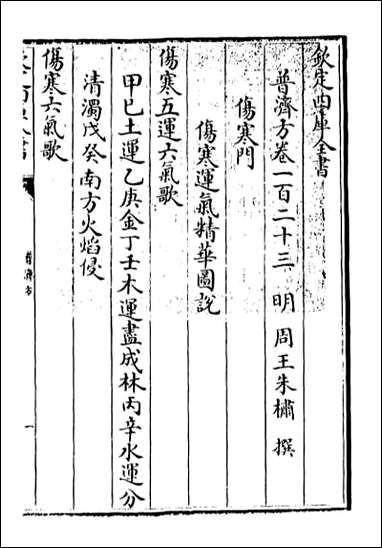 欽定四庫全書
普濟方卷一百二十三　明　周王朱橚　撰
傷寒門
傷寒運氣精華圖説
傷寒五運六氣歌
甲已土運乙庚金丁壬木運盡成林丙辛水運分
清濁戊癸南方火焰侵
傷寒六氣歌
普濟方
一